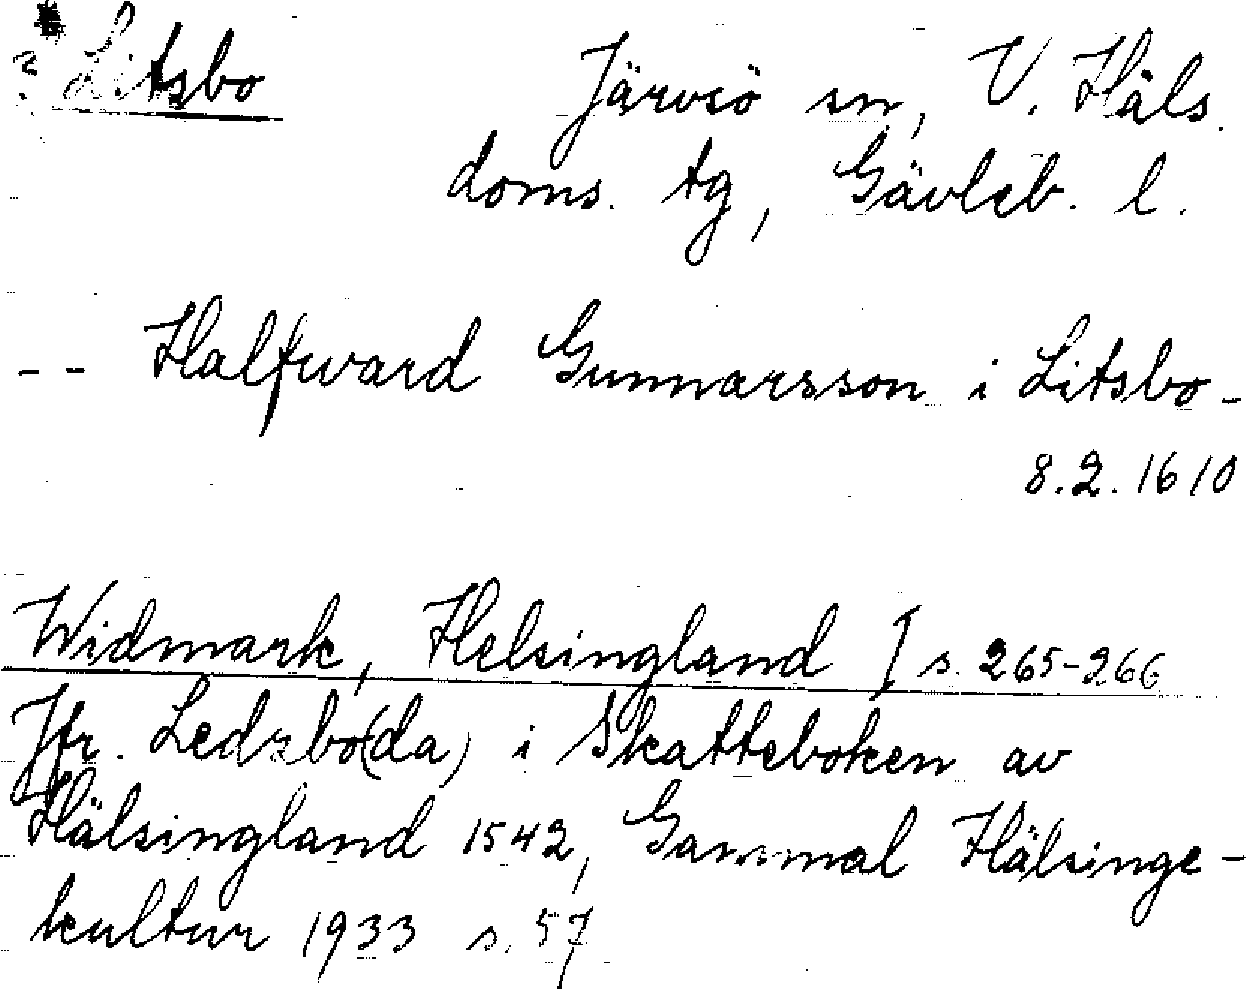 ? Litsbo Järvsö sn, V. Häls.
doms. tg, Gävleb. l.
-- Halfward Gunnarsson i Litsbo -
8.2.1610
Widmark, Helsingland I s. 265-266
Jfr. Ledzbo(da) i Skatteboken av
Hälsingland 1542, Gammal Hälsinge-
kultur 1933 s. 57